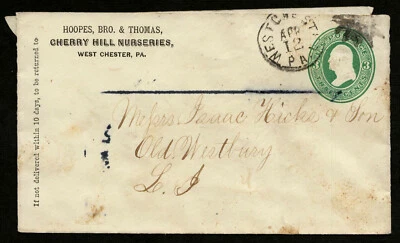 If not delivered within 10 days, to be returned to
HOOPES, BRO. & THOMAS,
CHERRY HILL NURSERIES,
WEST CHESTER, PA.
WEST CHEST
APR
12
PA
Messrs Isaac Hicks & Son
Old Westbury
L I